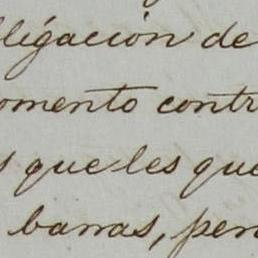 bligación de
omento contr
s que les que
barras, per